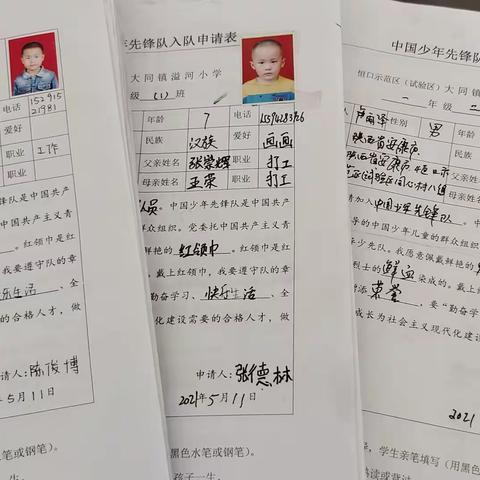 电话
15291521981
爱好
职业
工作
职业
先锋队是中国共产
中国共产主义青
。红领巾是红
我要遵守队的章
乐生活
、全
的合格人才，做
请人：陈俊博
5月11日
年先锋队入队申请表
大同镇溢河小学
级（1）班
年龄
7
电话
民族
汉族
爱好
画画
父亲姓名
张崇辉
职业
打工
母亲姓名
王荣
职业
打工
队员。中国少年先锋队是中国共产
群众组织。党委托中国共产主义青
鲜艳的红领巾。红领巾是红
。戴上红领巾，我要遵守队的章
勤奋学习、快乐生活、全
化建设需要的合格人才，做
申请人：张德林
2021年5月11日
黑色水笔或钢笔）。
孩子一生。
中国少年先锋队
恒口示范区（试验区）大同镇
一 年级 二
性别
男
民族
陕西省安康市
父亲姓名
母亲姓名
请加入中国少年先锋队。
导的中国少年儿童的群众组织
年先队。我愿意佩戴鲜艳的
烈士的鲜血染成的。戴上
添荣誉，要“勤奋学
成长为社会主义现代化建设
2021
学生亲笔填写（用黑色